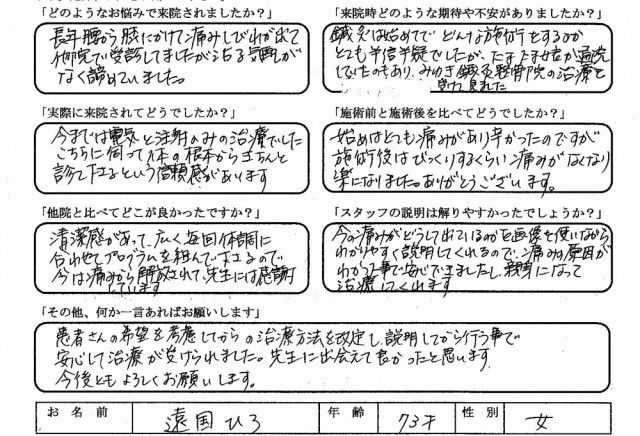 「どのようなお悩みで来院されましたか？」
長年腰から肢にかけて痛みしびれが出て
他院で受診してましたが治る気配が
なく諦めていました。
「来院時どのような期待や不安がありましたか？」
鍼灸は始めてで どんな施術をするのか
とても半信半疑でしたが、たまたま女房が通院
していたのもあり、みゆき鍼灸整骨院の治療を
受けて見れた
「実際に来院されてどうでしたか？」
今までは電気と注射のみの治療でした
こちらに伺って体の根本からきちんと
診て下さるという信頼感があります
「施術前と施術後を比べてどうでしたか？」
始めはとても痛みがあり辛かったのですが
施術後はびっくりするくらい痛みがなくなり
楽になりました。ありがとうございます。
「他院と比べてどこが良かったですか？」
清潔感があって、広く毎回体調に
合わせてプログラムを組んで下さるので
今は痛みから解放されて、先生には感謝
しています
「スタッフの説明は解りやすかったでしょうか？」
今の痛みがどうして出ているのかを画像を使いながら
わかりやすく説明してくれるので、痛みの原因が
わかった事で安心できましたし、親身になって
治療してくれます
「その他、何か一言あればお願いします」
患者さんの希望を考慮してからの治療方法を改定し、説明してから行う事で
安心して治療が受けられました。先生に出会えて良かったと思います
今後ともよろしくお願いします。
お名前 遠国ひろ 年齢 73才 性別 女